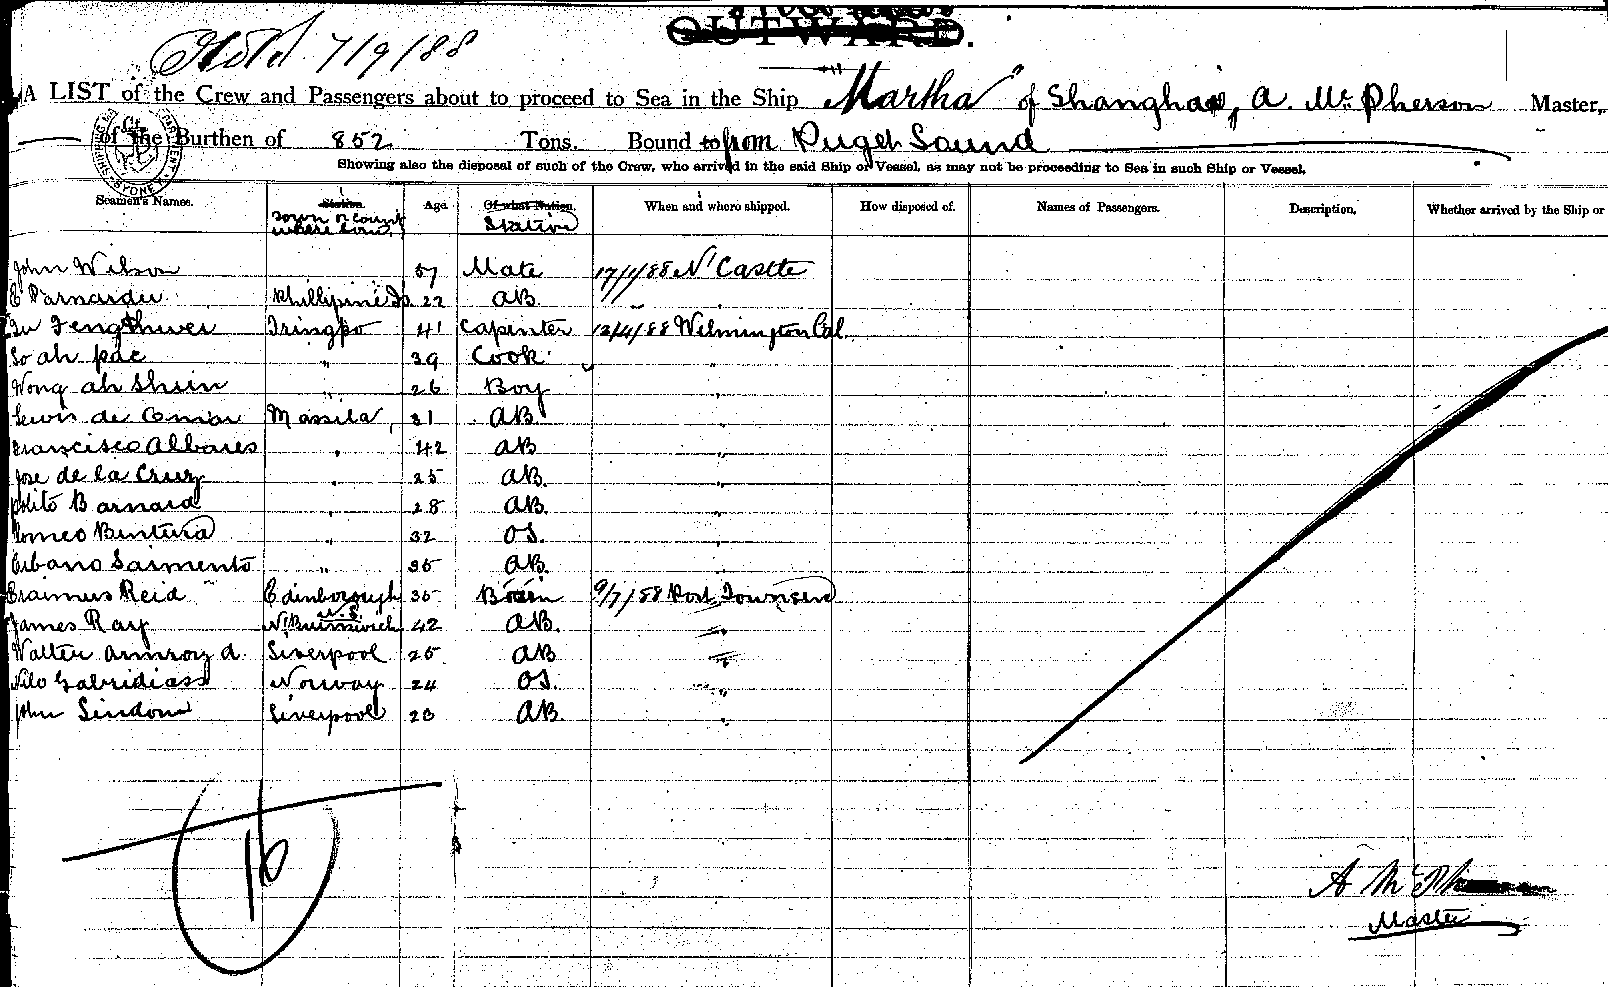 OUTWARD.
7/9/88
A LIST of the Crew and Passengers about to proceed to Sea in the Ship "Martha" of Shanghai, A. McPherson Master,
of the Burthen of 852 Tons. Bound to from Puget Sound
Showing also the disposal of such of the Crew, who arrived in the said Ship or Vessel, as may not be proceeding to Sea in such Ship or Vessel.
Seamen's Names. Station. Town or County where born Age Of what Nation. Station When and where shipped. How disposed of. Names of Passengers. Description. Whether arrived by the Ship or
John Wilson 57 Mate 17/1/88 N'Castle
Phillipine Is 22 AB. "
41 Carpenter 12/4/88 Wilmington Cal
So ah pac " 39 Cook "
Wong ah Shun " 26 Boy "
Lewis de 31 AB "
Francisco Albares " 42 AB "
Jose de la Cruz " 25 AB. "
Polito Barnard " 28 AB. "
Romeo Bentura " 32 OS. "
Urbano Sarmento " 35 AB. "
Erasmus Reid Edinborough 35 9/7/88 Port Townsend
James Ray N. Brunswick U.S 42 AB. "
Walter Liverpool 25 AB "
Norway 24 OS. "
John Lindon Liverpool 23 AB. "
16
A McPherson
Master